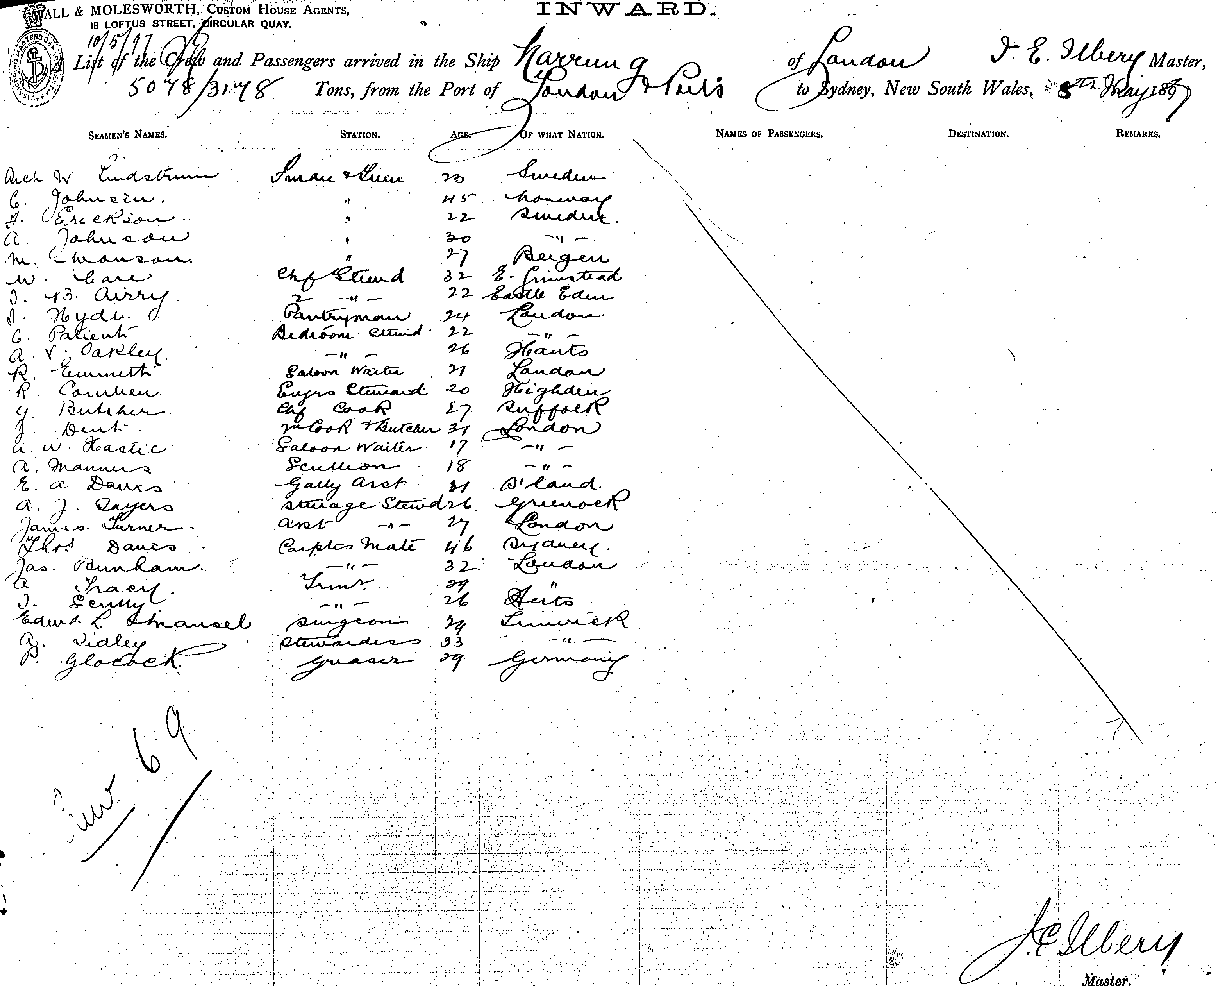 WALL & MOLESWORTH, CUSTOM HOUSE AGENTS,
18 LOFTUS STREET, CIRCULAR QUAY.
INWARD.
10/5/97
List of the Crew and Passengers arrived in the Ship Narrung of London J. E. Ilbery Master,
5078/3178 Tons, from the Port of London & Ports to Sydney, New South Wales, 8th May 1897
SEAMEN'S NAMES. STATION. AGE. OF WHAT NATION. NAMES OF PASSENGERS. DESTINATION. REMARKS.
Arch W Lindstrum 23 Sweden
C. Johnsen. " 45 Norway
J. Erickson " 22 Sweden.
A. Johnson " 30 - " -
M. Swanson. " 27 Bergen
W. Care Chf Stewd 32 E. Grinstead
J. B. Airry. 2 - " - 22 Castle Eden
J. Hyde Pantryman 24 London
C. Patient Bedroom Stewd 22 - " -
A. V. Oakley. - " - 26 Hants
R. Emmeth Saloon Waiter 21 London
R. Comben Engrs Steward 20 Highden
G. Butcher Chf Cook 27 Suffolk
J. Dent 2nd Cook & Butcher 31 London
A. W. Hastie Saloon Waiter 17 - " -
A. Manners Scullion 18 - " -
E. A. Danks Gally Asst 21 S'land
A. J. Sayers Steerage Stewd 26 Greenock
James Turner Asst - " - 27 London
Thos Davies Carptrs Mate 46 Sydney.
Jas. Burnham. - " - 32 London
Tracey. Trimr 29 "
J. Scully - " - 26 Herts
Edwd L. Mansel Surgeon 29
Sidley Stewardess 33 - " -
P. Glocock Greaser 29 Germany
inw 69
J. E. Ilbery
Master.